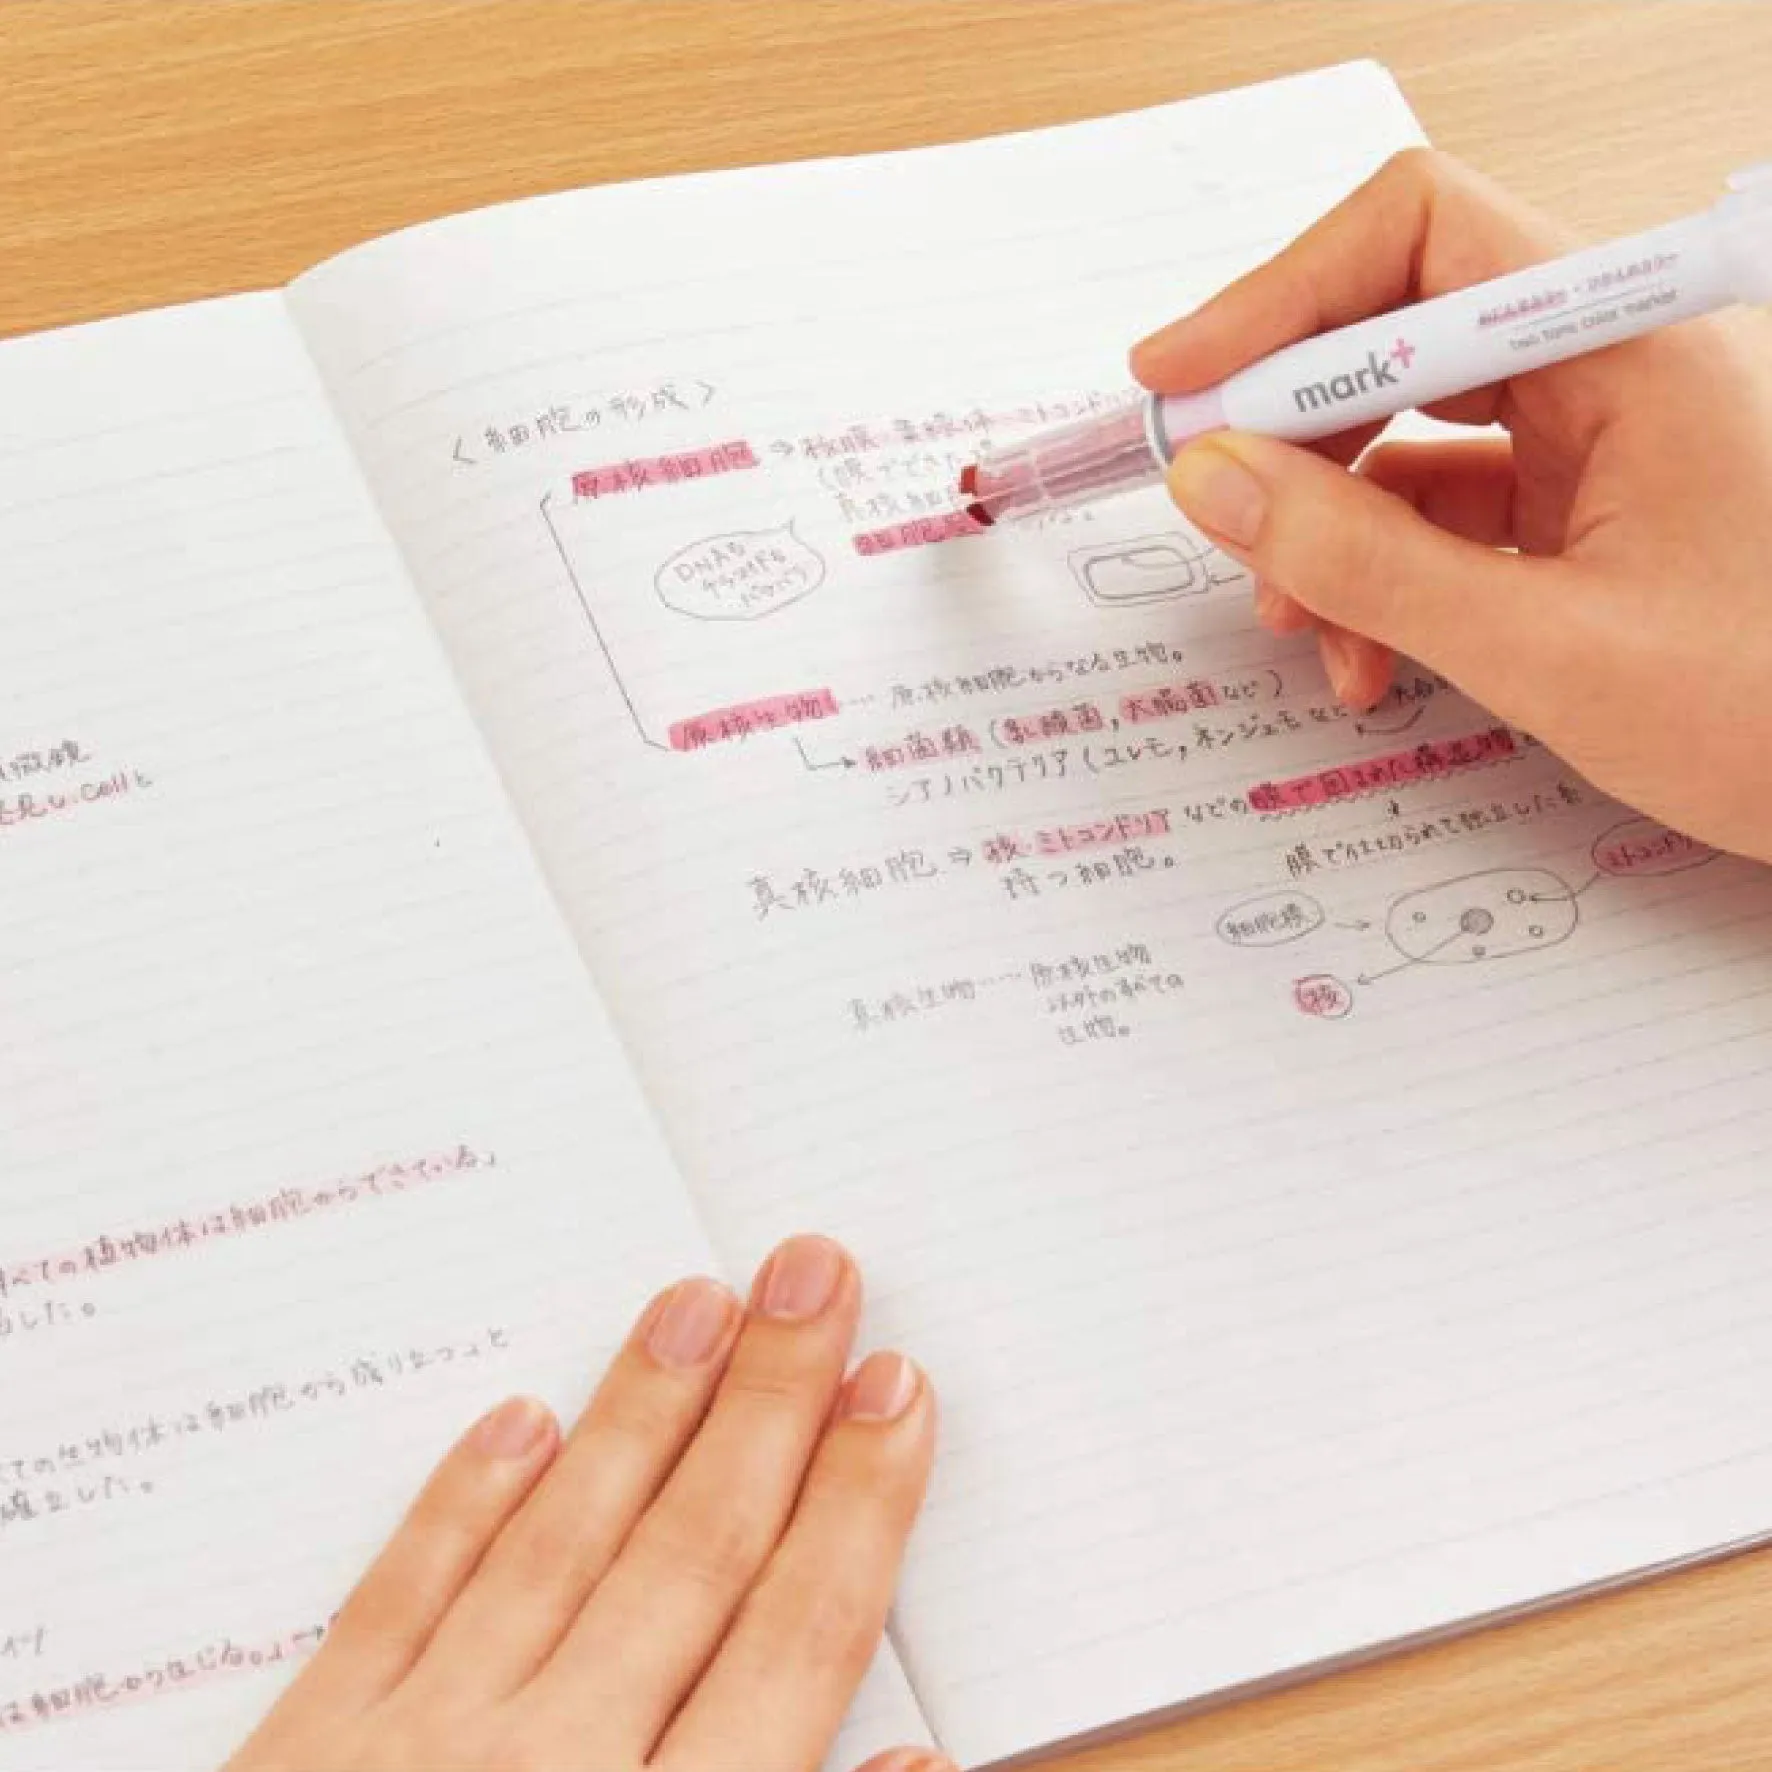 微鏡
見し.cellと
すべての植物体は細胞からできている」
した。
ての生物体は細胞から成り立つ」と
確立した。
は細胞から生じる。」→
〈細胞の形成〉
原核細胞 ⇒ 核膜・葉緑体・ミトコンドリア
(膜でできた
真核細胞
細胞
DNAも
バラバラ
原核生物 … 原核細胞からなる生物。
細菌類(乳酸菌, 大腸菌など)
シアノバクテリア(ユレモ, ネンジュモなど
真核細胞 ⇒ 核・ミトコンドリアなどの膜で囲まれた構造物を
持つ細胞。
膜で仕切られて独立した
ミトコンドリア
細胞膜
核
真核生物…… 原核生物
以外のすべての
生物。
mark+
two tone color marker